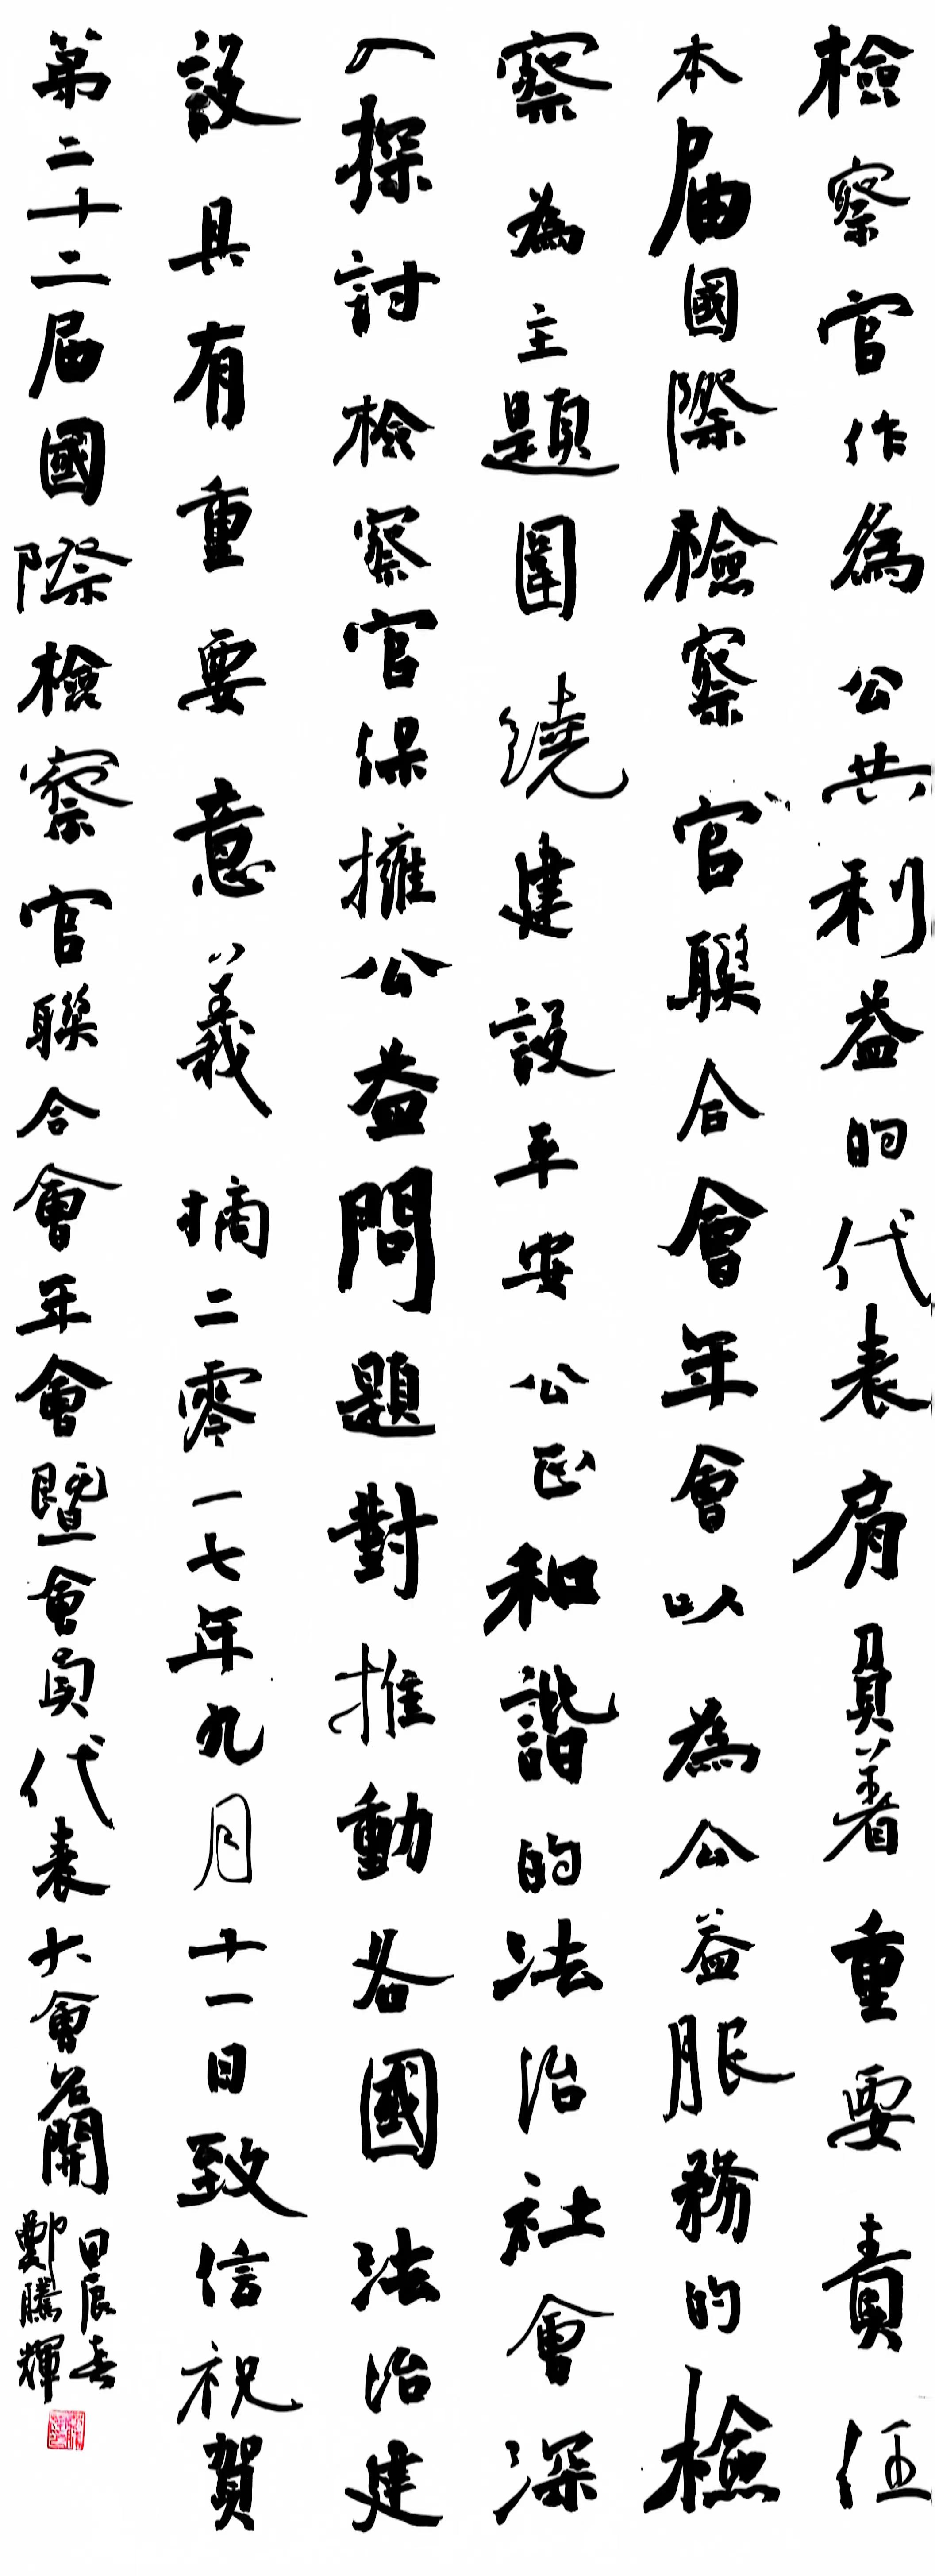 檢察官作為公共利益的代表肩負著重要責任
本屆國際檢察官聯合會年會以為公益服務的檢
察為主題圍繞建設平安公正和諧的法治社會深
入探討檢察官保擁公益問題對推動各國法治建
設具有重要意義摘二零一七年九月十一日致信祝賀
第二十二屆國際檢察官聯合會年會暨會員代表大會召開
辰春
鄭騰輝